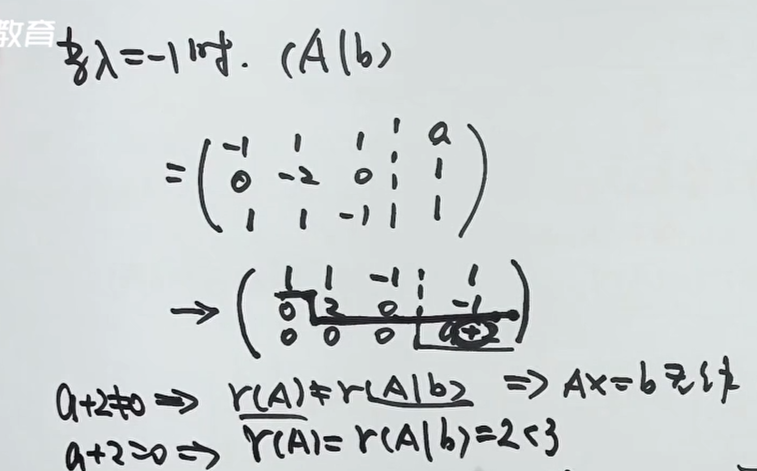 教育
当λ=-1时. (A|b)
= ( -1 1 1 ¦ a
0 -2 0 ¦ 1
1 1 -1 ¦ 1 )
→ ( 1 1 -1 ¦ 1
0 2 0 ¦ -1
0 0 0 ¦ a+2 )
a+2≠0 ⇒ r(A)≠r(A|b) ⇒ AX=b无解
a+2=0 ⇒ r(A)=r(A|b)=2<3